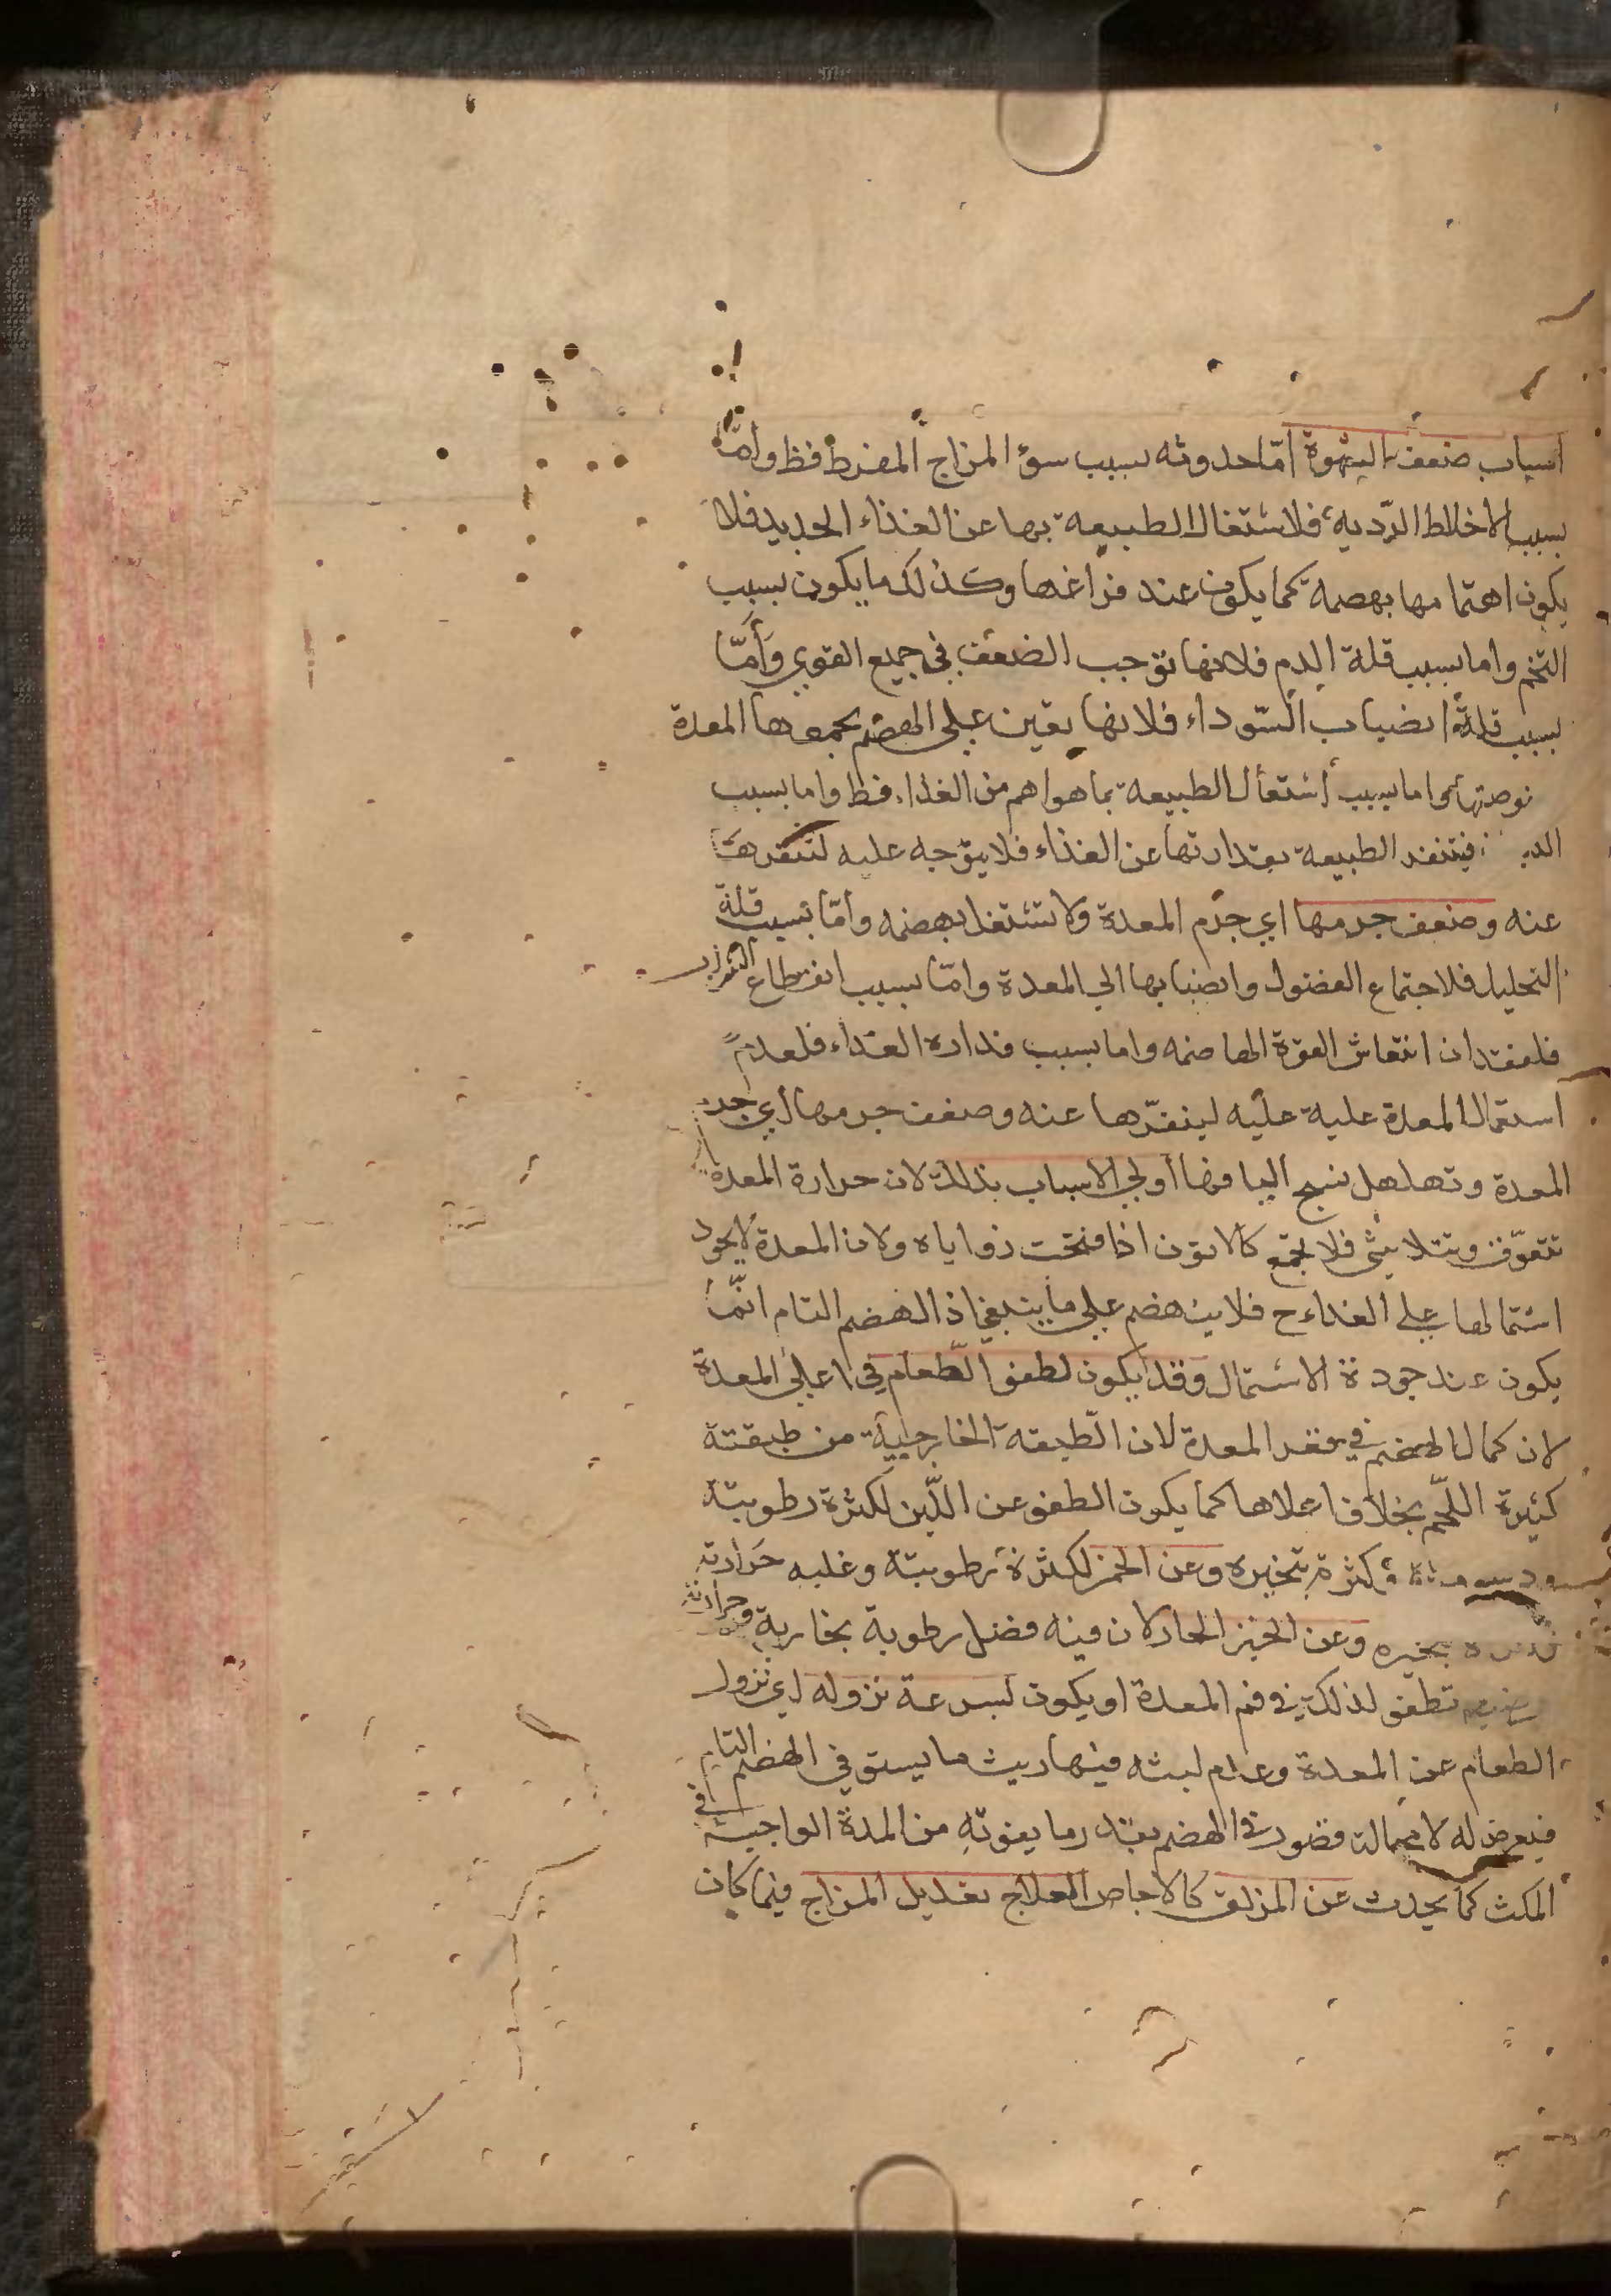 اسباب ضعف الشهوة امّا حدوثه بسبب سوء المزاج المفرط فظ وامّا
بسبب الاخلاط الرّدية فلاشتغال الطبيعة بها عن الغذاء الجديد فلا
يكون اهتمامها بهضمه كما يكون عند فراغها وكذلك ما يكون بسبب
التخم واما بسبب قلة الدم فلانها توجب الضعف في جميع القوي وأمّا
بسبب قلة انضباب السّوداء فلانها تعين على الهضم بجمعها المعدة
واما بسبب اشتغال الطبيعة بما هو اهم من الغذاء فظ واما بسبب
فيتنفر الطبيعة بقذارتها عن الغذاء فلا يتوجه عليه لتنفرها
عنه وضعف جرمها اي جرم المعدة ولا تشتغل بهضمه وامّا بسبب قلة
التحليل فلاجتماع الفضول وانصبابها الي المعدة وامّا بسبب انقطاع
فلفقدان انتعاش القوة الهاضمه واما بسبب قذارة الغذاء فلعدم
استمال المعدة عليه عليه لينفّرها عنه وضعف جرمها اي جرم
المعدة وتهلهل نسج اليافها أولي الاسباب بذلك لان حرارة المعدة
تتفرّق وتتلاشي فلا يجتمع كالاتون اذا فتحت زواياه ولان المعدة لا يجود
اشتمالها علي الغذاء ح فلا ينهضم علي ما ينبغي اذ الهضم التام انّما
يكون عند جودة الاشتمال وقد يكون لطفو الطعام في اعالي المعدة
لان كمال الهضم في قعر المعدة لان الطبقه الخارجية من طبقته
كثيرة اللّحم بخلاف اعلاها كما يكون الطفو عن اللّبن لكثرة رطوبته
ودسومته وكثرة تبخيره وعن الخمر لكثرة رطوبته وغلبه حرارته
تبخيره وعن الخبز الحار لان فيه فضل رطوبة بخارية وحرارته
تطفو لذلك في فم المعدة او يكون لسرعة نزوله اي نزول
الطعام عن المعدة وعدم لبثه فيها ريث ما يستوفي الهضم التام
فيعرض له لا محالة قصور في الهضم بقدر ما يفوته من المدة الواجبة في
المكث كما يحدث عن المزلق كالاجاص العلاج تعديل المزاج فيما كان